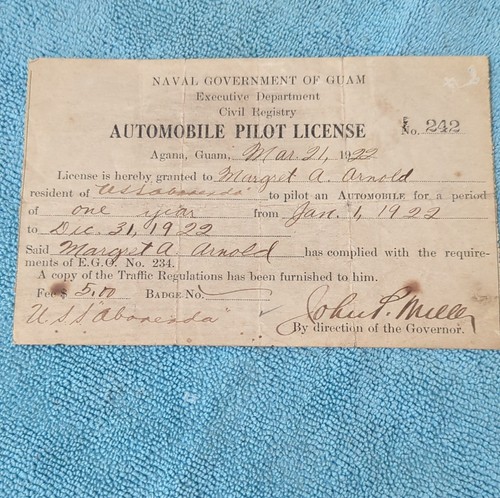 NAVAL GOVERNMENT OF GUAM
Executive Department
Civil Registry
AUTOMOBILE PILOT LICENSE No. 242
Agana, Guam, Mar. 21, 1922
License is hereby granted to Margret A. Arnold
resident of "USS Abarenda" to pilot an AUTOMOBILE for a period
of one year from Jan. 1, 1922
to Dec. 31, 1922
Said Margret A. Arnold has complied with the require-
ments of E.G.O. No. 234.
A copy of the Traffic Regulations has been furnished to him.
Fee $ 5.00 BADGE No.
USS Abarenda" John P. Miller
By direction of the Governor.